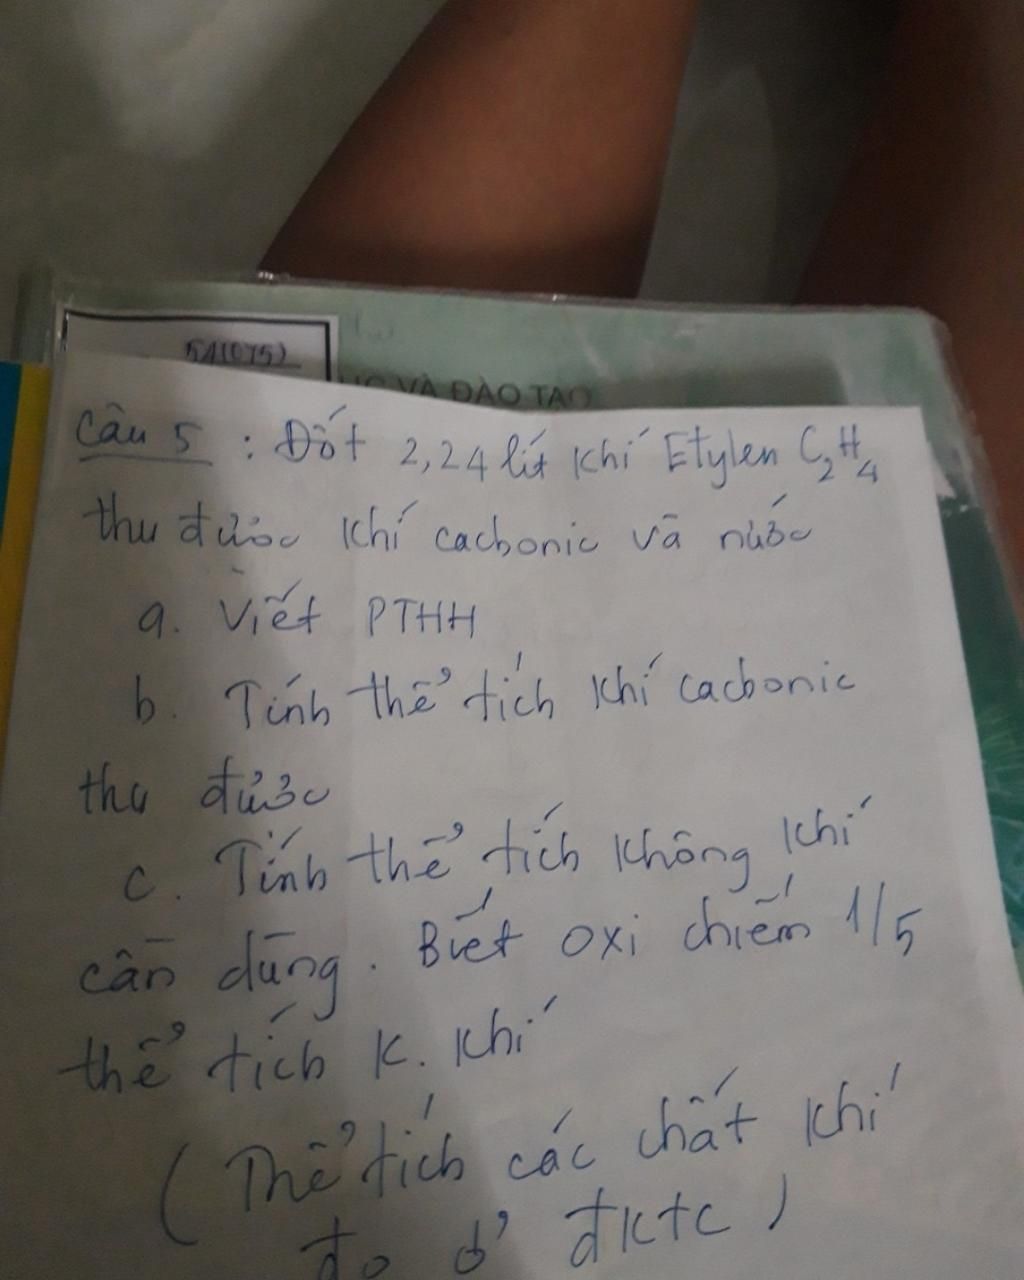 51(075)
VÀ ĐÀO TẠO
Câu 5 : Đốt 2,24 lít khí Etylen C2H4
thu được khí cacbonic và nước
a. Viết PTHH
b. Tính thể tích khí cacbonic
thu được
c. Tính thể tích không khí
cần dùng. Biết oxi chiếm 1/5
thể tích k. khí
(Thể tích các chất khí
đo ở đktc)